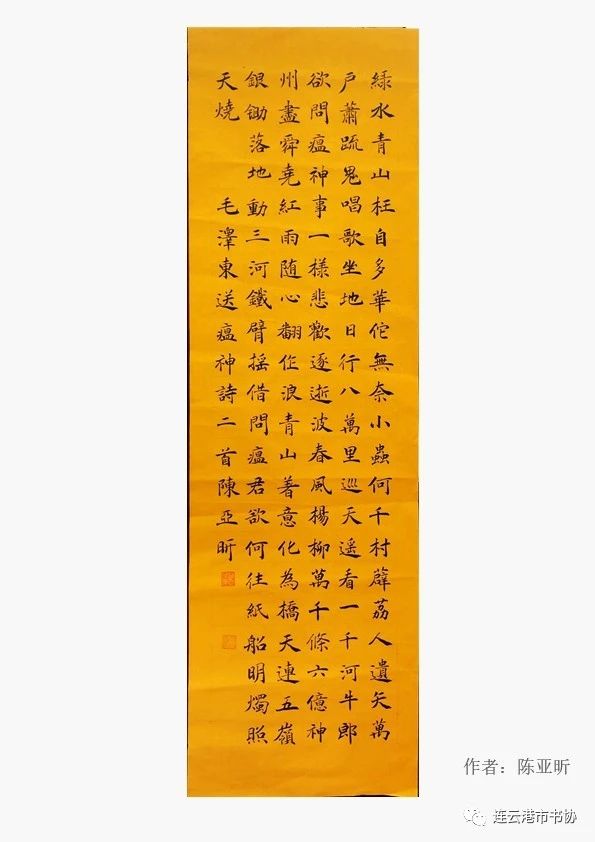 緑水青山枉自多華佗無奈小蟲何千村薜荔人遺矢萬
戶蕭疏鬼唱歌坐地日行八萬里巡天遥看一千河牛郎
欲問瘟神事一樣悲歡逐逝波春風楊柳萬千條六億神
州盡舜堯紅雨随心翻作浪青山著意化為橋天連五嶺
銀鋤落地動三河鐵臂摇借問瘟君欲何往紙船明燭照
天燒 毛澤東送瘟神詩二首陳亞昕
作者：陈亚昕
连云港市书协